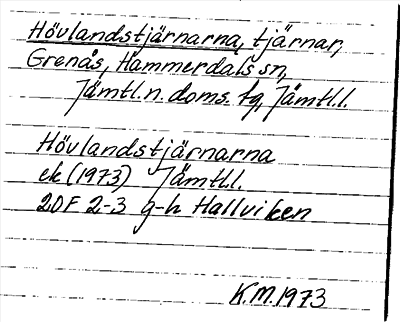 Hövlandstjärnarna, tjärnar,
Grenås, Hammerdals sn,
Jämtl.n. doms. tg Jämtl.l.
Hövlandstjärnarna
ek (1973) Jämtl.l.
20F 2-3 g-h Hallviken
K.M. 1973